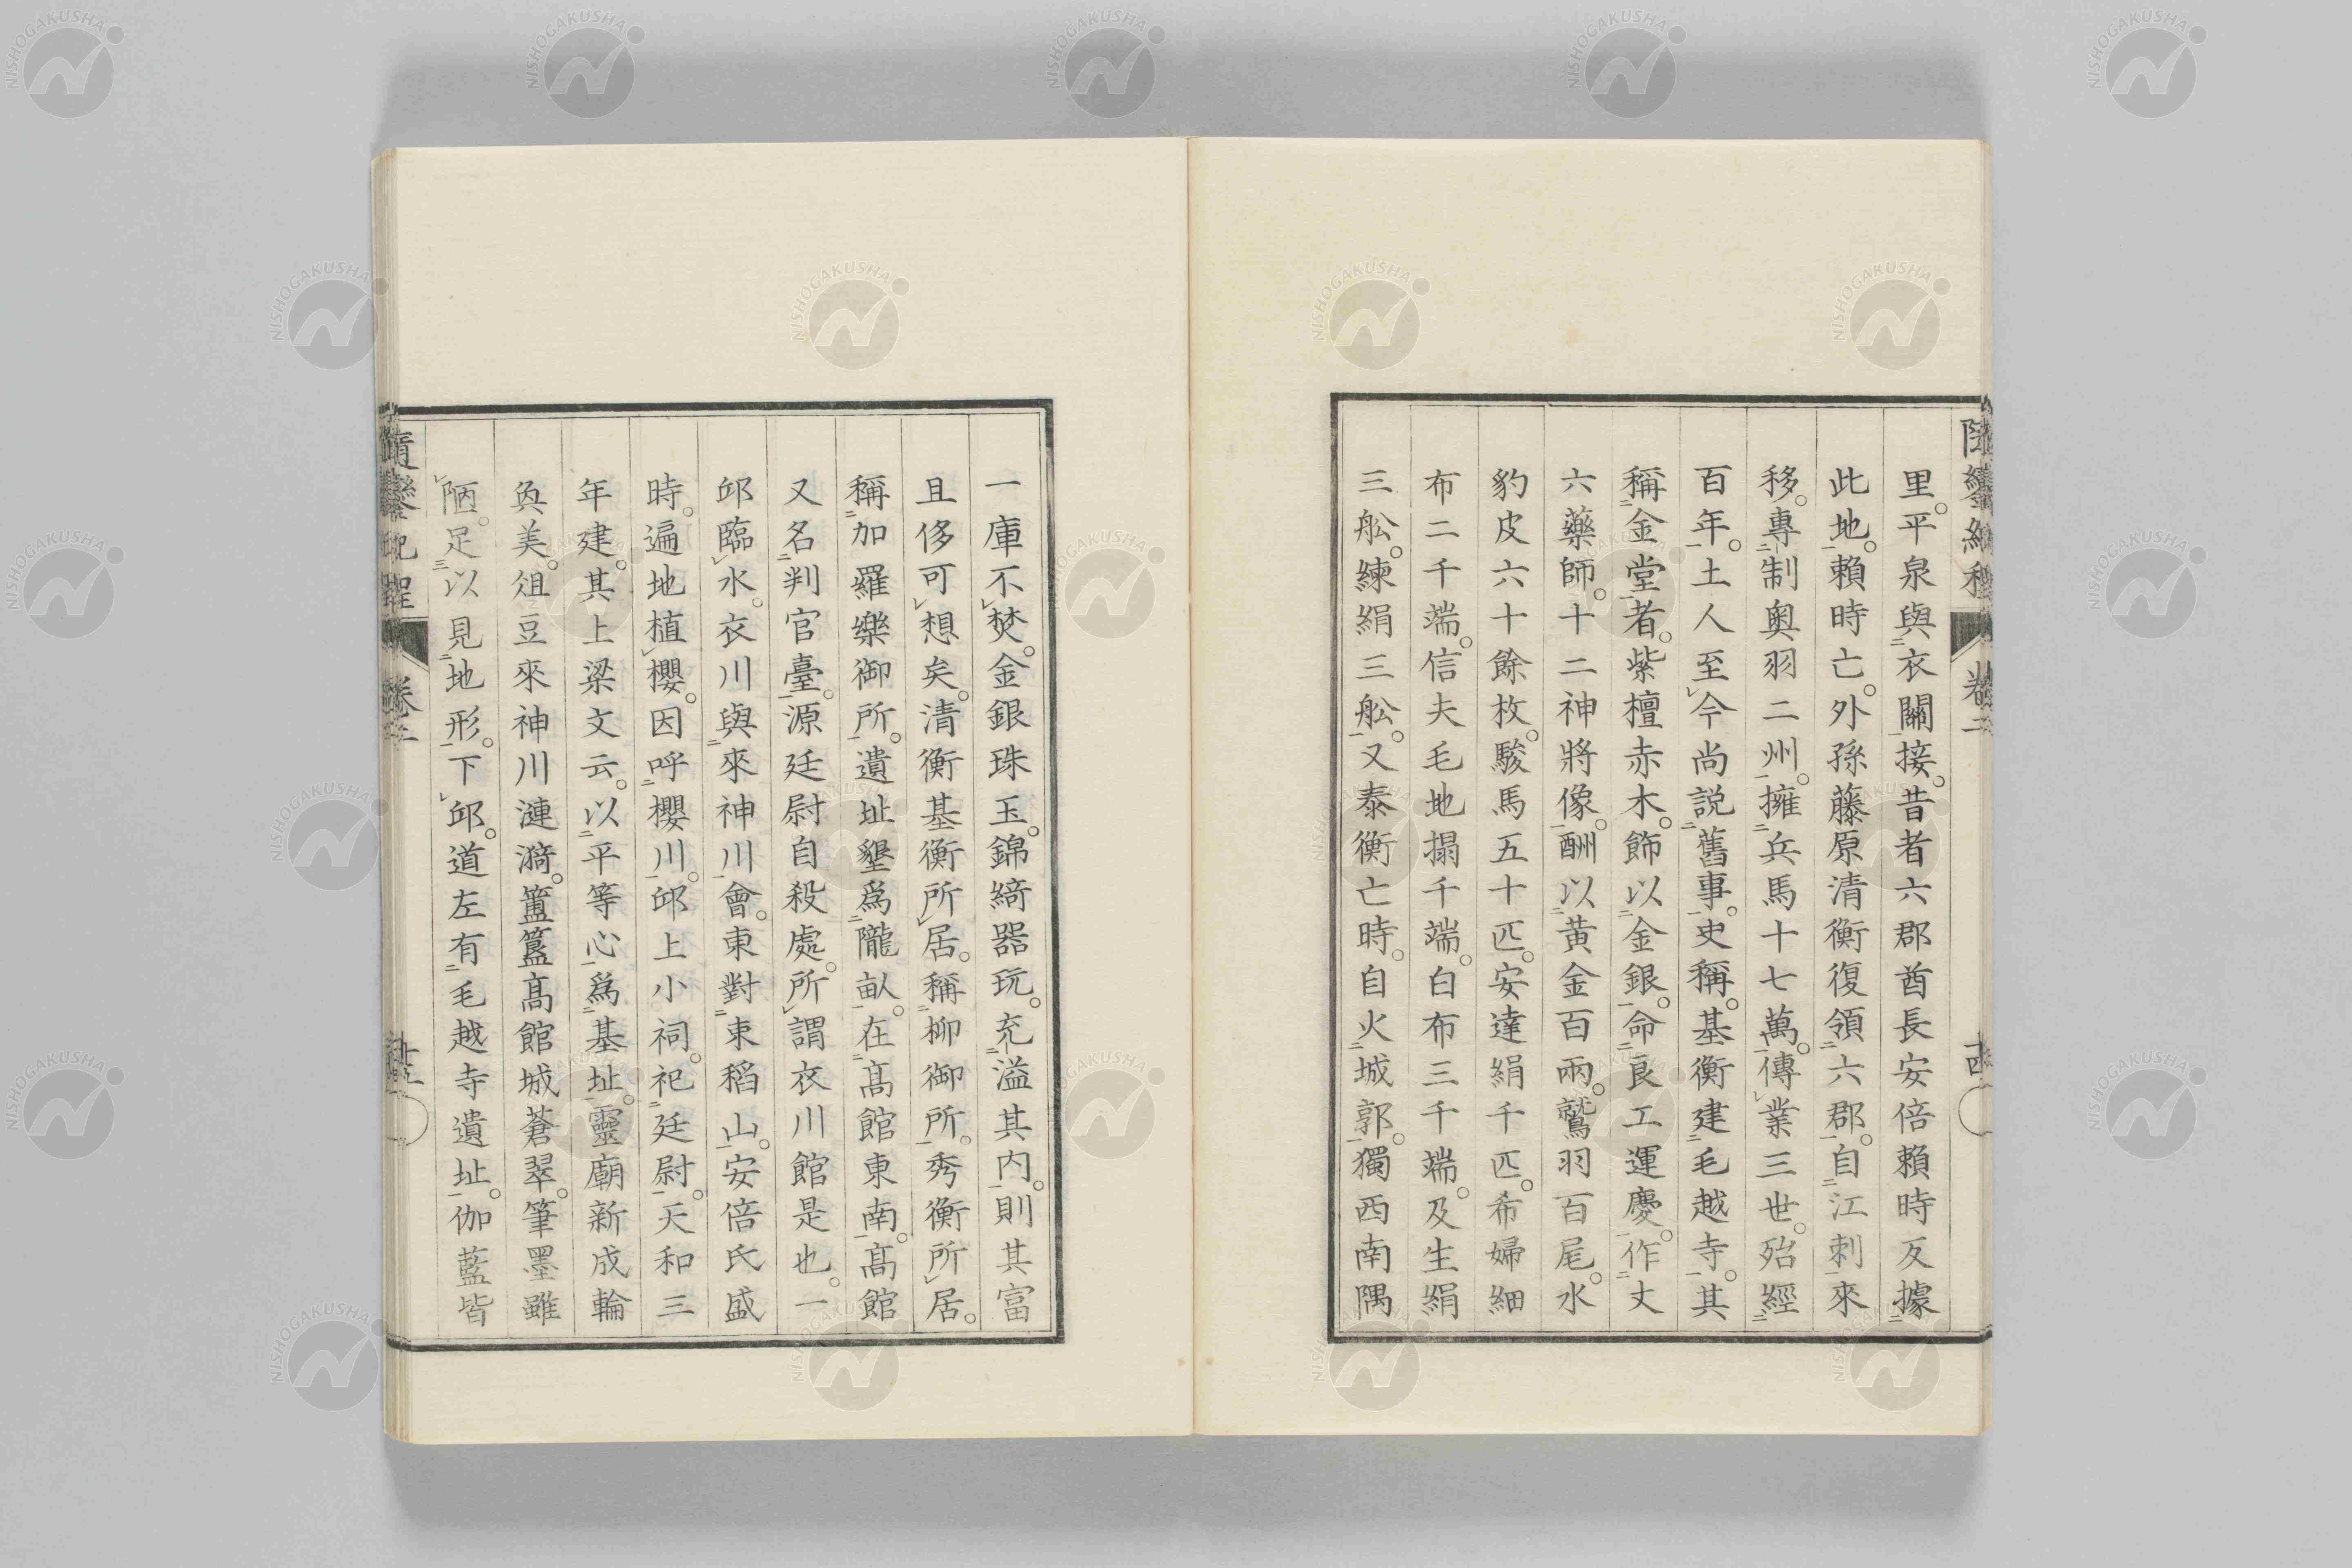 里。平泉與衣關接。昔者六郡酋長安倍賴時反據
此地。賴時亡。外孫藤原清衡復領六郡。自江刺來
移。專制奧羽二州。擁兵馬十七萬。傳業三世。殆經
百年。土人至今尚説舊事。史稱。基衡建毛越寺。其
稱金堂者。紫檀赤木。飾以金銀。命良工運慶。作丈
六藥師。十二神將像。酬以黃金百兩。鷲羽百尾。水
豹皮六十餘枚。駿馬五十匹。安達絹千匹。希婦細
布二千端。信夫毛地摺千端。白布三千端。及生絹
三舩。練絹三舩。又泰衡亡時。自火城郭。獨西南隅
一庫不焚。金銀珠玉。錦綺器玩。充溢其内。則其富
且侈可想矣。清衡基衡所居。稱柳御所。秀衡所居。
稱加羅樂御所。遺址墾爲隴畝。在髙館東南。髙館
又名判官臺。源廷尉自殺處。所謂衣川館是也。一
邱臨水。衣川與來神川會。東對東稻山。安倍氏盛
時。遍地植櫻。因呼櫻川。邱上小祠。祀廷尉。天和三
年建。其上梁文云。以平等心爲基址。靈廟新成輪
奐美。俎豆來神川漣漪。簠簋髙館城蒼翠。筆墨雖
陋。足以見地形。下邱。道左有毛越寺遺址。伽藍皆
卷二
十四
NISHOGAKUSHA